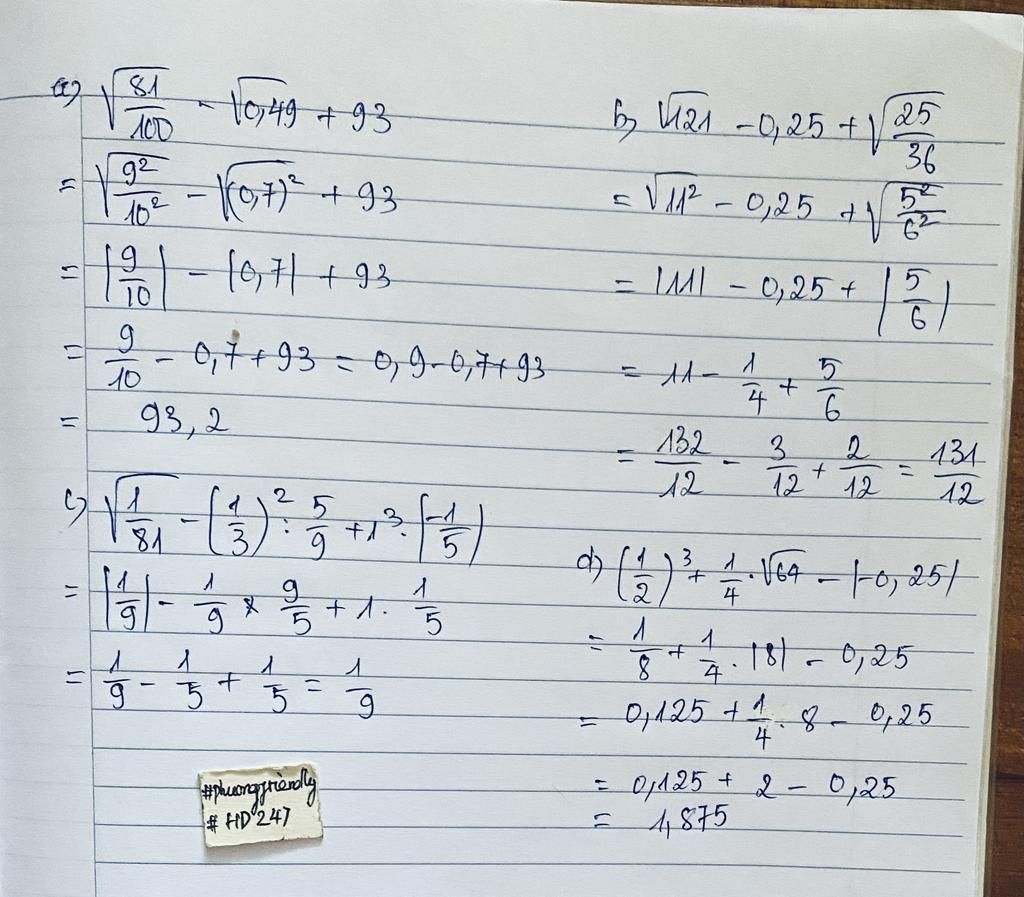 a) √(81/100) - √0,49 + 93
= √(9²/10²) - √(0,7)² + 93
= |9/10| - |0,7| + 93
= 9/10 - 0,7 + 93 = 0,9 - 0,7 + 93
= 93,2
b) √121 - 0,25 + √(25/36)
= √11² - 0,25 + √(5²/6²)
= |11| - 0,25 + |5/6|
= 11 - 1/4 + 5/6
= 132/12 - 3/12 + 2/12 = 131/12
c) √(1/81) - (1/3)² : 5/9 + 1³ . |-1/5|
= |1/9| - 1/9 × 9/5 + 1 . 1/5
= 1/9 - 1/5 + 1/5 = 1/9
d) (1/2)³ + 1/4 . √64 - |-0,25|
= 1/8 + 1/4 . |8| - 0,25
= 0,125 + 1/4 . 8 - 0,25
= 0,125 + 2 - 0,25
= 1,875
#phuongfriendly
#HD247